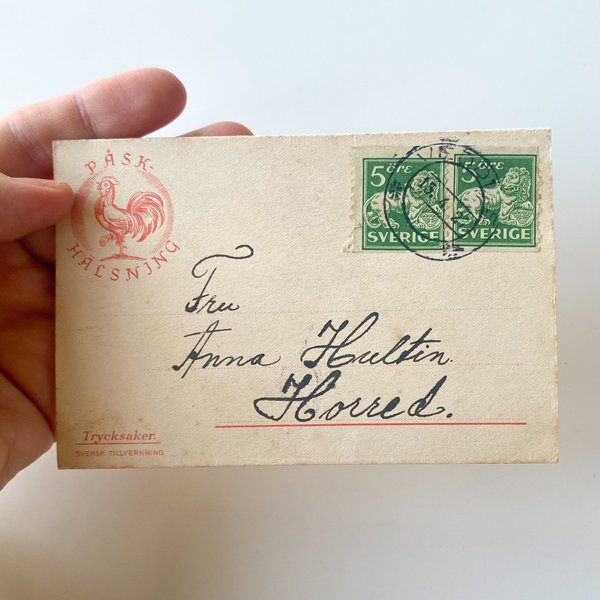 PÅSK-
HÄLSNING
5 ÖRE
SVERIGE
5 ÖRE
SVERIGE
Fru
Anna Hultin.
Horred.
Trycksaker.
SVENSK TILLVERKNING